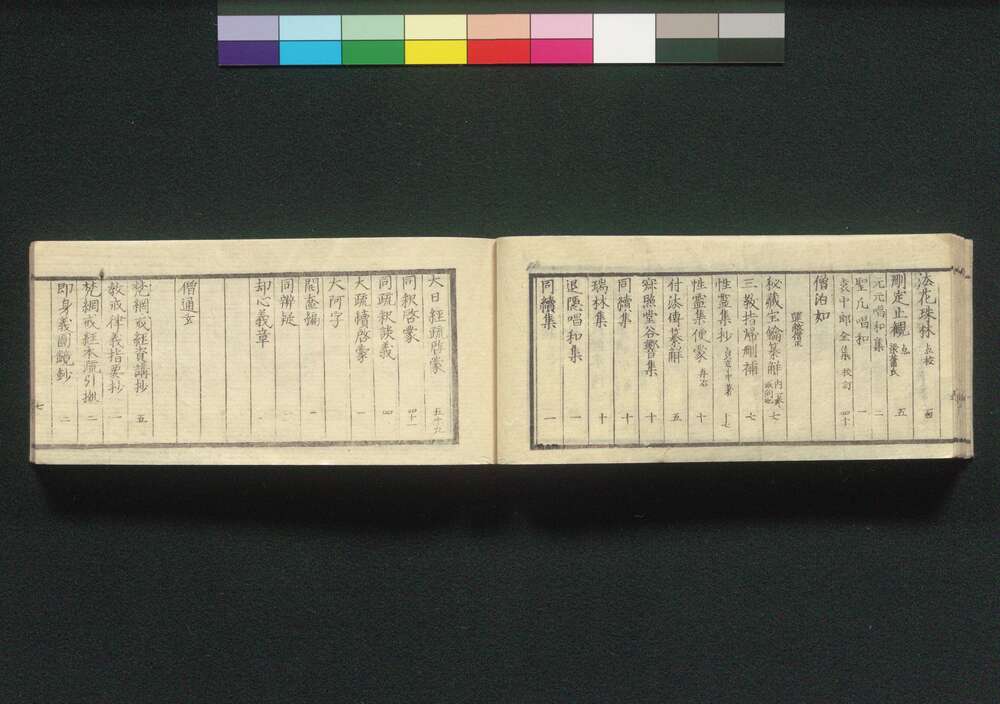 法花珠林 点校 百
刪定止観 点 梁蕭氏 五
元元唱和集 二
聖凡唱和 一
袁中郎全集 校訂 四十
僧泊如
運敞僧正
秘蔵宝鑰纂解 七
三教指帰刪補 七
性霊集抄 十七
性霊集便蒙 十
付法傳纂解 五
寂照堂谷響集 十
同續集 十
瑞林集 十
退隱唱和集 一
同續集 一
大日経疏啓蒙 五十九
同報啓蒙
同疏報談義 四
大疏續啓蒙 一
大阿字 一
闇齋編 一
同辨疑 一
却心義章 一
僧通玄
梵網戒経資講抄 五
教戒律義指要抄 一
梵網戒経本疏引據 二
即身義圓鏡鈔 二
七